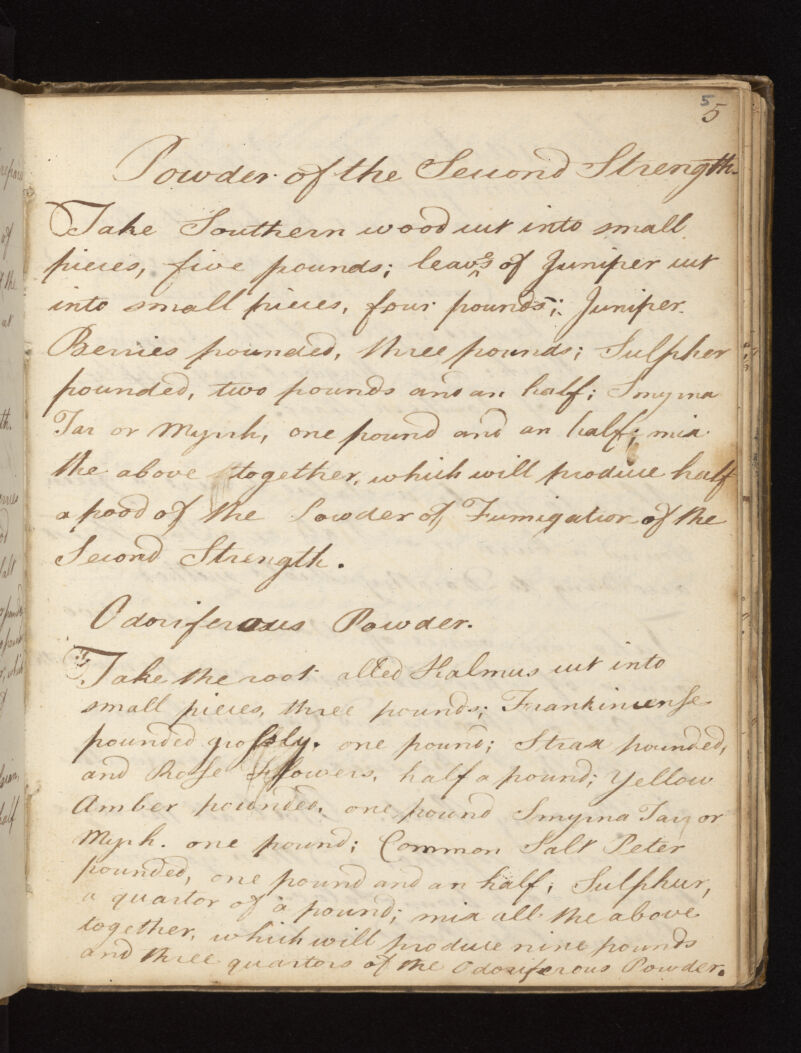 5
5
Powder of the Second Strength.
Take Southern wood cut into small
pieces, five pounds; leaves of Juniper cut
into small pieces, four pounds; Juniper
Berries pounded, three pounds; Sulpher
pounded, two pounds and an half; Smyrna
Tar or Myrrh, one pound and an half; mix
the above together, which will produce half
a pood of the Powder of Fumigation of the
Second Strength.
Odoriferous Powder.
Take the root alled Kalmus cut into
small pieces, three pounds; Frankincense
pounded grossly. one pound; Strax pounded,
and Rose Flowers, half a pound; Yellow
Amber pounded, one pound Smyrna Tar or
Myrh. one pound; Common Salt Peter
pounded, one pound and an half; Sulphur,
a quarter of a pound; mix all the above
together, which will produce nine pounds
and three quarters of the Odoriferous Powder.